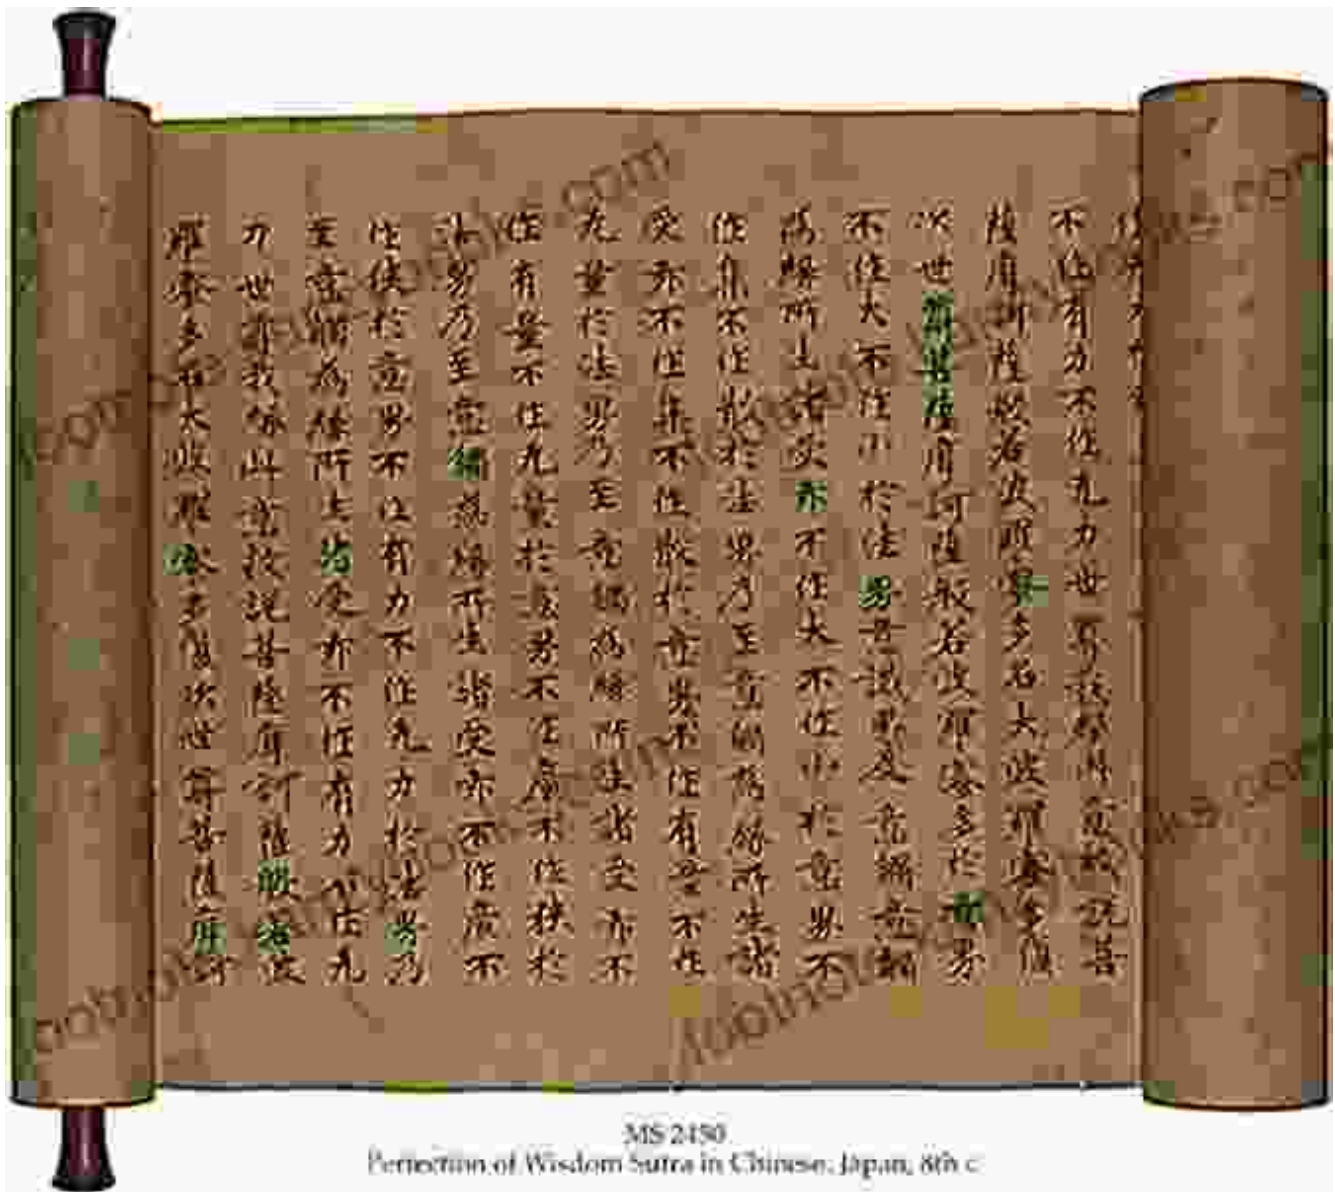 不作有力不作无力世尊我緣此意故說菩
薩摩訶薩般若波羅蜜多名大波羅蜜多復
次世菩薩摩訶薩般若波羅蜜多於界
不作大不作小於法界意識界及意觸意觸
為緣所生諸受亦不作大不作小於意界不
作集不作散於法界乃至意觸為緣所生諸
受亦不作集不作散於意界不作有量不作
无量於法界乃至意觸為緣所生諸受亦不
作有量不作无量於意界不作廣不作狹於
法界乃至意觸為緣所生諸受亦不作廣不
作狹於意界不作有力不作无力於法界乃
至意觸為緣所生諸受亦不作有力不作无
力世尊我緣此意故說菩薩摩訶薩般若波
羅蜜多名大波羅蜜多復次世尊菩薩摩訶
MS
Perfection of Wisdom Sutra in Chinese. Japan, 8th c